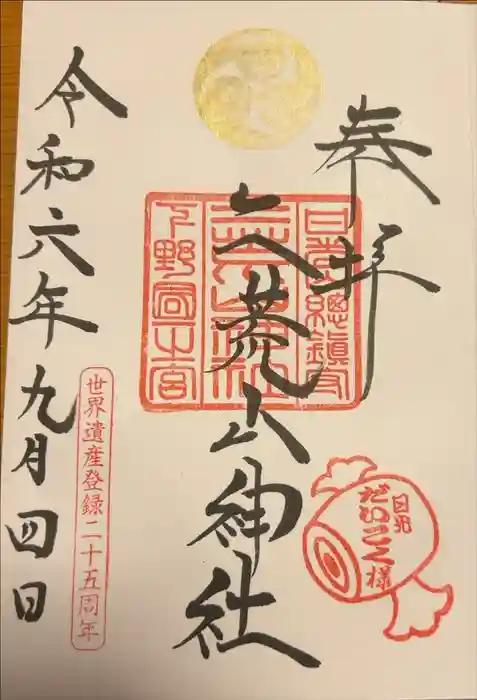 奉拝
日光總鎮守
二荒山神社
下野國一宮
日光
だいこく様
令和六年九月四日
世界遺産登録二十五周年